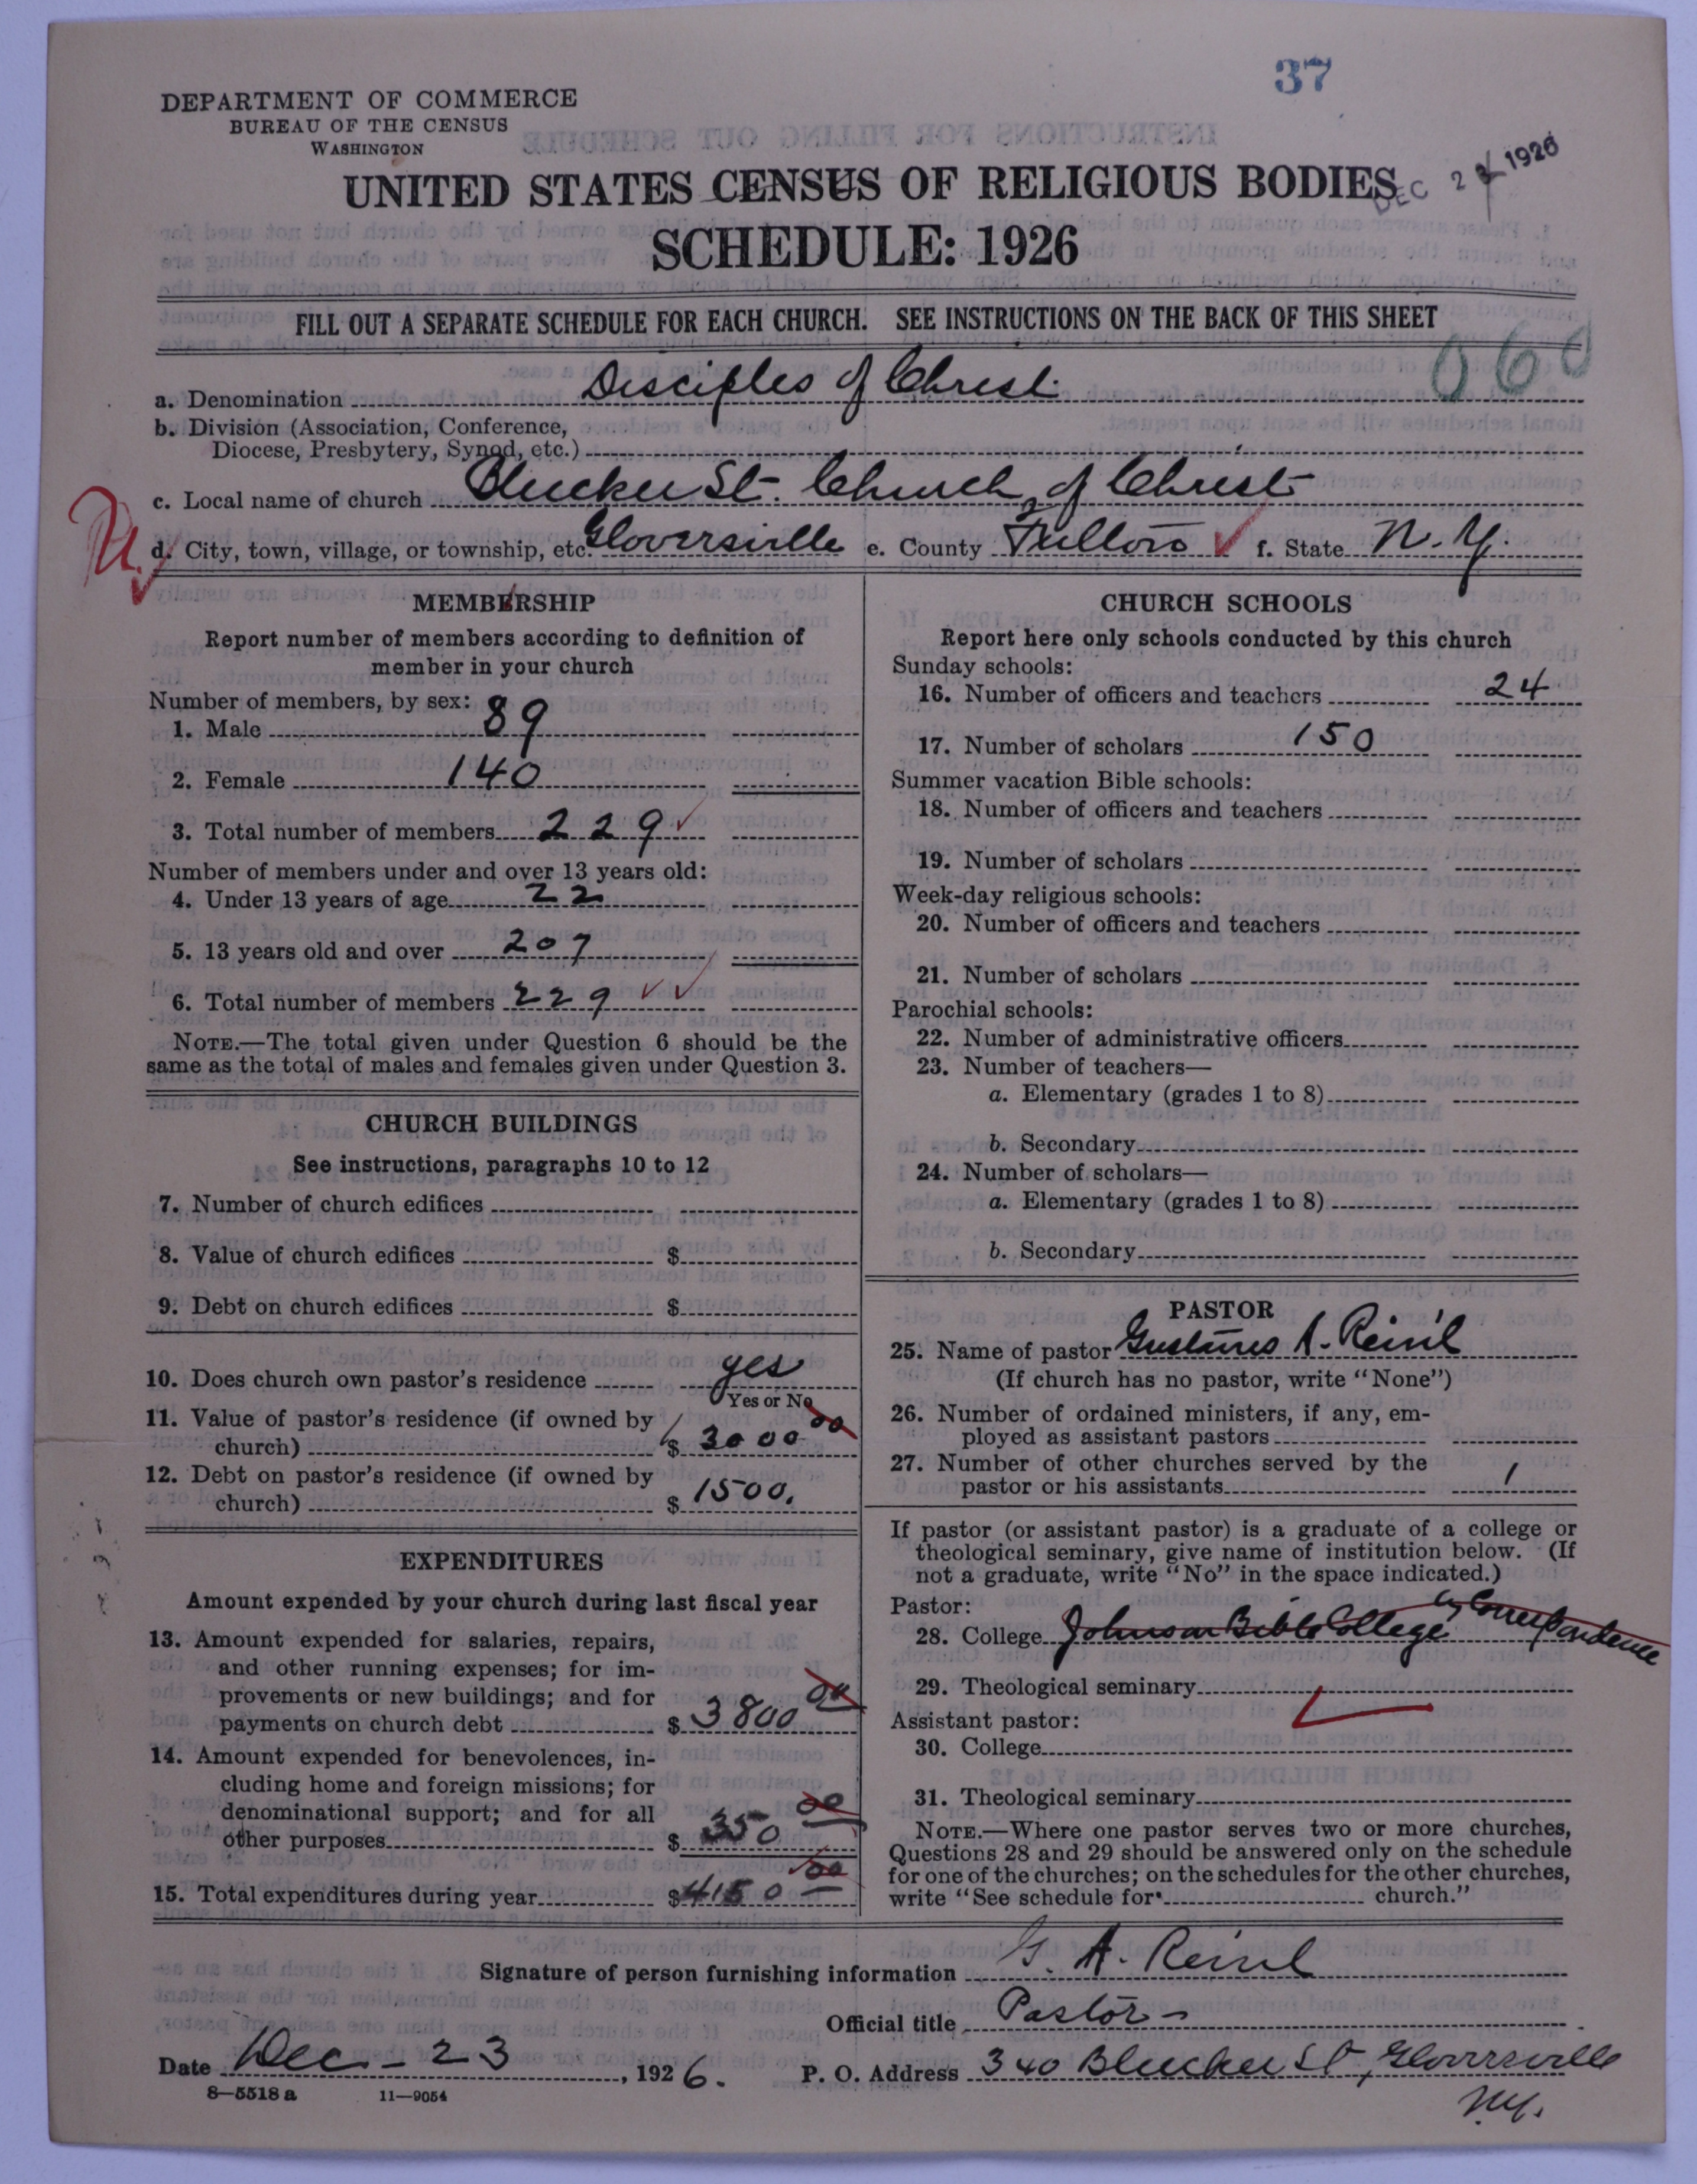 37
DEPARTMENT OF COMMERCE
BUREAU OF THE CENSUS
WASHINGTON
DEC 2 1926
UNITED STATES CENSUS OF RELIGIOUS BODIES
SCHEDULE: 1926
FILL OUT A SEPARATE SCHEDULE FOR EACH CHURCH. SEE INSTRUCTIONS ON THE BACK OF THIS SHEET
060
a. Denomination Disciples of Christ
b. Division (Association, Conference,
Diocese, Presbytery, Synod, etc.)
c. Local name of church Bleecker St. Church of Christ
d. City, town, village, or township, etc. Gloversville e. County Fulton f. State N. Y.
MEMBERSHIP
Report number of members according to definition of
member in your church
Number of members, by sex:
1. Male 89
2. Female 140
3. Total number of members 229
Number of members under and over 13 years old:
4. Under 13 years of age 22
5. 13 years old and over 207
6. Total number of members 229
NOTE.—The total given under Question 6 should be the
same as the total of males and females given under Question 3.
CHURCH BUILDINGS
See instructions, paragraphs 10 to 12
7. Number of church edifices
8. Value of church edifices $
9. Debt on church edifices $
10. Does church own pastor's residence yes
Yes or No
11. Value of pastor's residence (if owned by
church) $ 3000 00
12. Debt on pastor's residence (if owned by
church) $ 1500.
EXPENDITURES
Amount expended by your church during last fiscal year
13. Amount expended for salaries, repairs,
and other running expenses; for im-
provements or new buildings; and for
payments on church debt $ 3800 00
14. Amount expended for benevolences, in-
cluding home and foreign missions; for
denominational support; and for all
other purposes $ 350 00
15. Total expenditures during year $ 4150 00
CHURCH SCHOOLS
Report here only schools conducted by this church
Sunday schools:
16. Number of officers and teachers 24
17. Number of scholars 150
Summer vacation Bible schools:
18. Number of officers and teachers
19. Number of scholars
Week-day religious schools:
20. Number of officers and teachers
21. Number of scholars
Parochial schools:
22. Number of administrative officers
23. Number of teachers—
a. Elementary (grades 1 to 8)
b. Secondary
24. Number of scholars—
a. Elementary (grades 1 to 8)
b. Secondary
PASTOR
25. Name of pastor A. Reinl
(If church has no pastor, write "None")
26. Number of ordained ministers, if any, em-
ployed as assistant pastors
27. Number of other churches served by the
pastor or his assistants 1
If pastor (or assistant pastor) is a graduate of a college or
theological seminary, give name of institution below. (If
not a graduate, write "No" in the space indicated.)
Pastor:
28. College Johnson Bible College by Correspondence
29. Theological seminary
Assistant pastor:
30. College
31. Theological seminary
NOTE.—Where one pastor serves two or more churches,
Questions 28 and 29 should be answered only on the schedule
for one of the churches; on the schedules for the other churches,
write "See schedule for church."
Signature of person furnishing information G. A. Reinl
Official title Pastor
Date Dec - 23, 1926. P. O. Address 340 Bleecker St, Gloversville
N.Y.
8—5518 a 11—9054